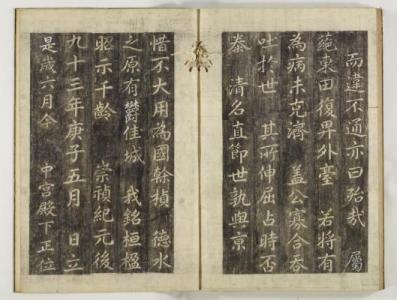 而違不通亦曰殆哉 屬
䕫東田復昇外臺 若將有
為病未克濟 蓋公寡合吞
吐於世 其所伸屈占時否
泰 清名直節世孰與京
惜不大用為國幹楨 德水
之原有鬱佳城 我銘桓楹
昭示千齡 崇禎紀元後
九十三年庚子五月 日立
是歲六月今 中宮殿下正位